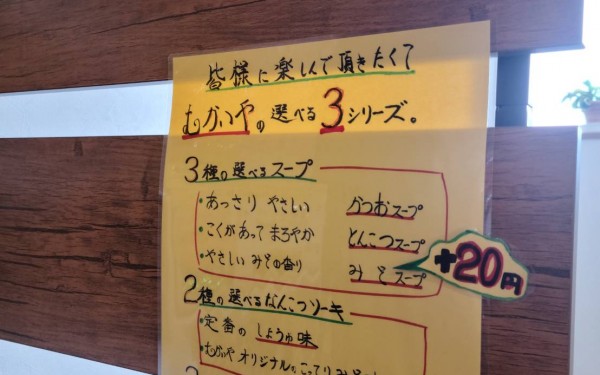 皆様に楽しんで頂きたくて
むかいやの選べる3シリーズ。
3種の選べるスープ
・あっさり やさしい かつおスープ
・こくがあって まろやか とんこつスープ
・やさしい みその香り みそスープ
+20円
2種の選べるなんこつソーキ
・定番の しょうゆ味
・むかいや オリジナルの こってりみそ